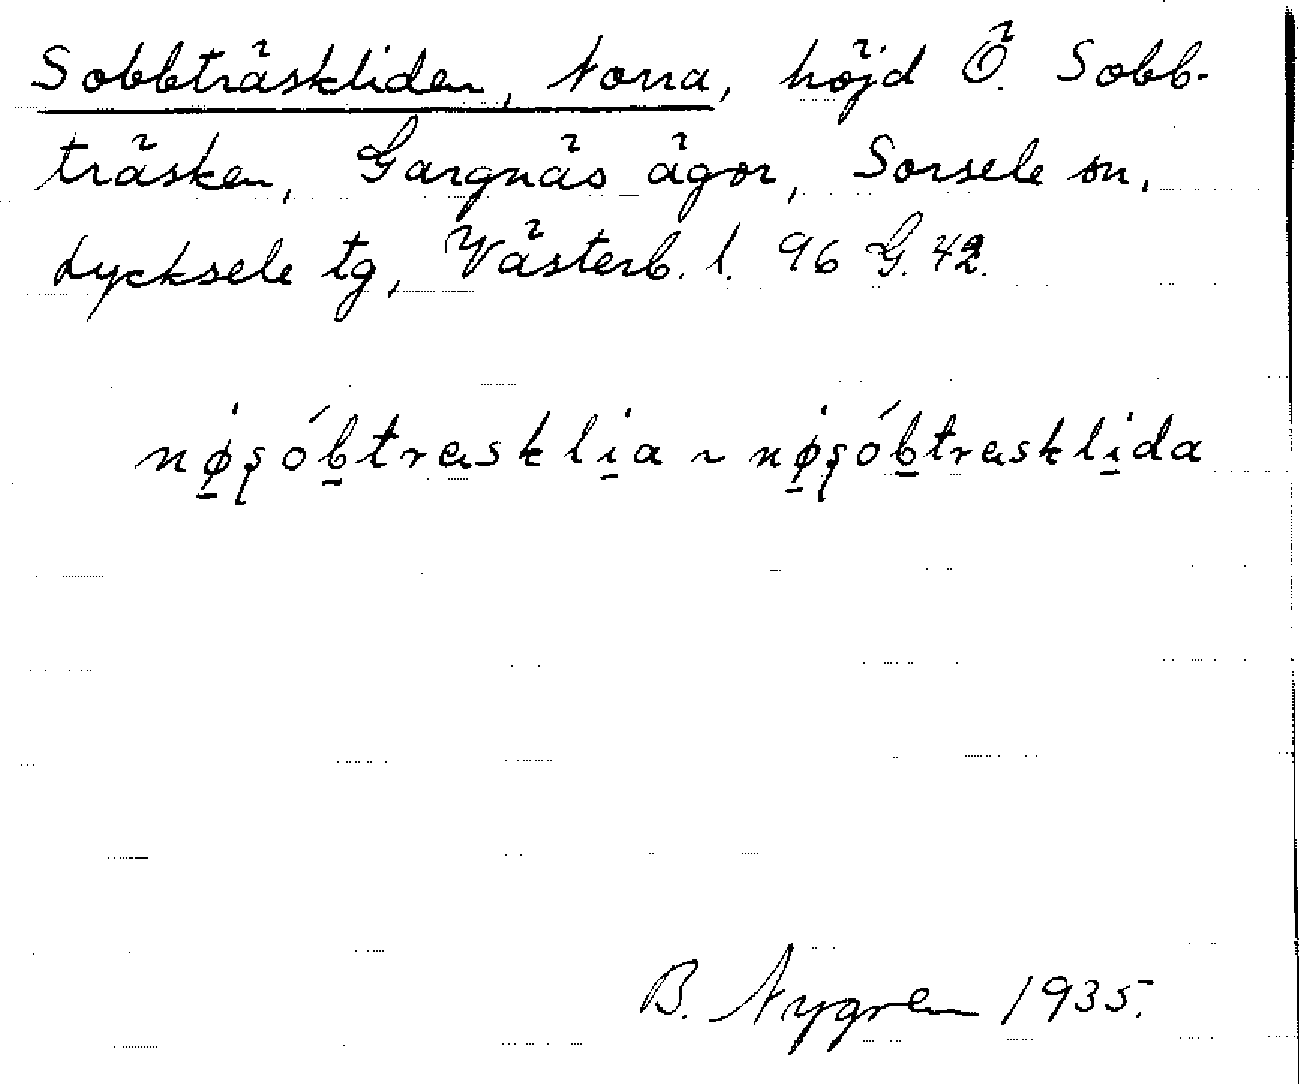 Sobbträskliden, Norra, höjd Ö. Sobb-
träsken, Gargnäs ägor, Sorsele sn,
Lycksele tg, Västerb. l. 96 G. 42.
nø̠ʂób̠traskli̠a ~ nø̠ʂób̠traskli̠da
B. Nygren 1935.